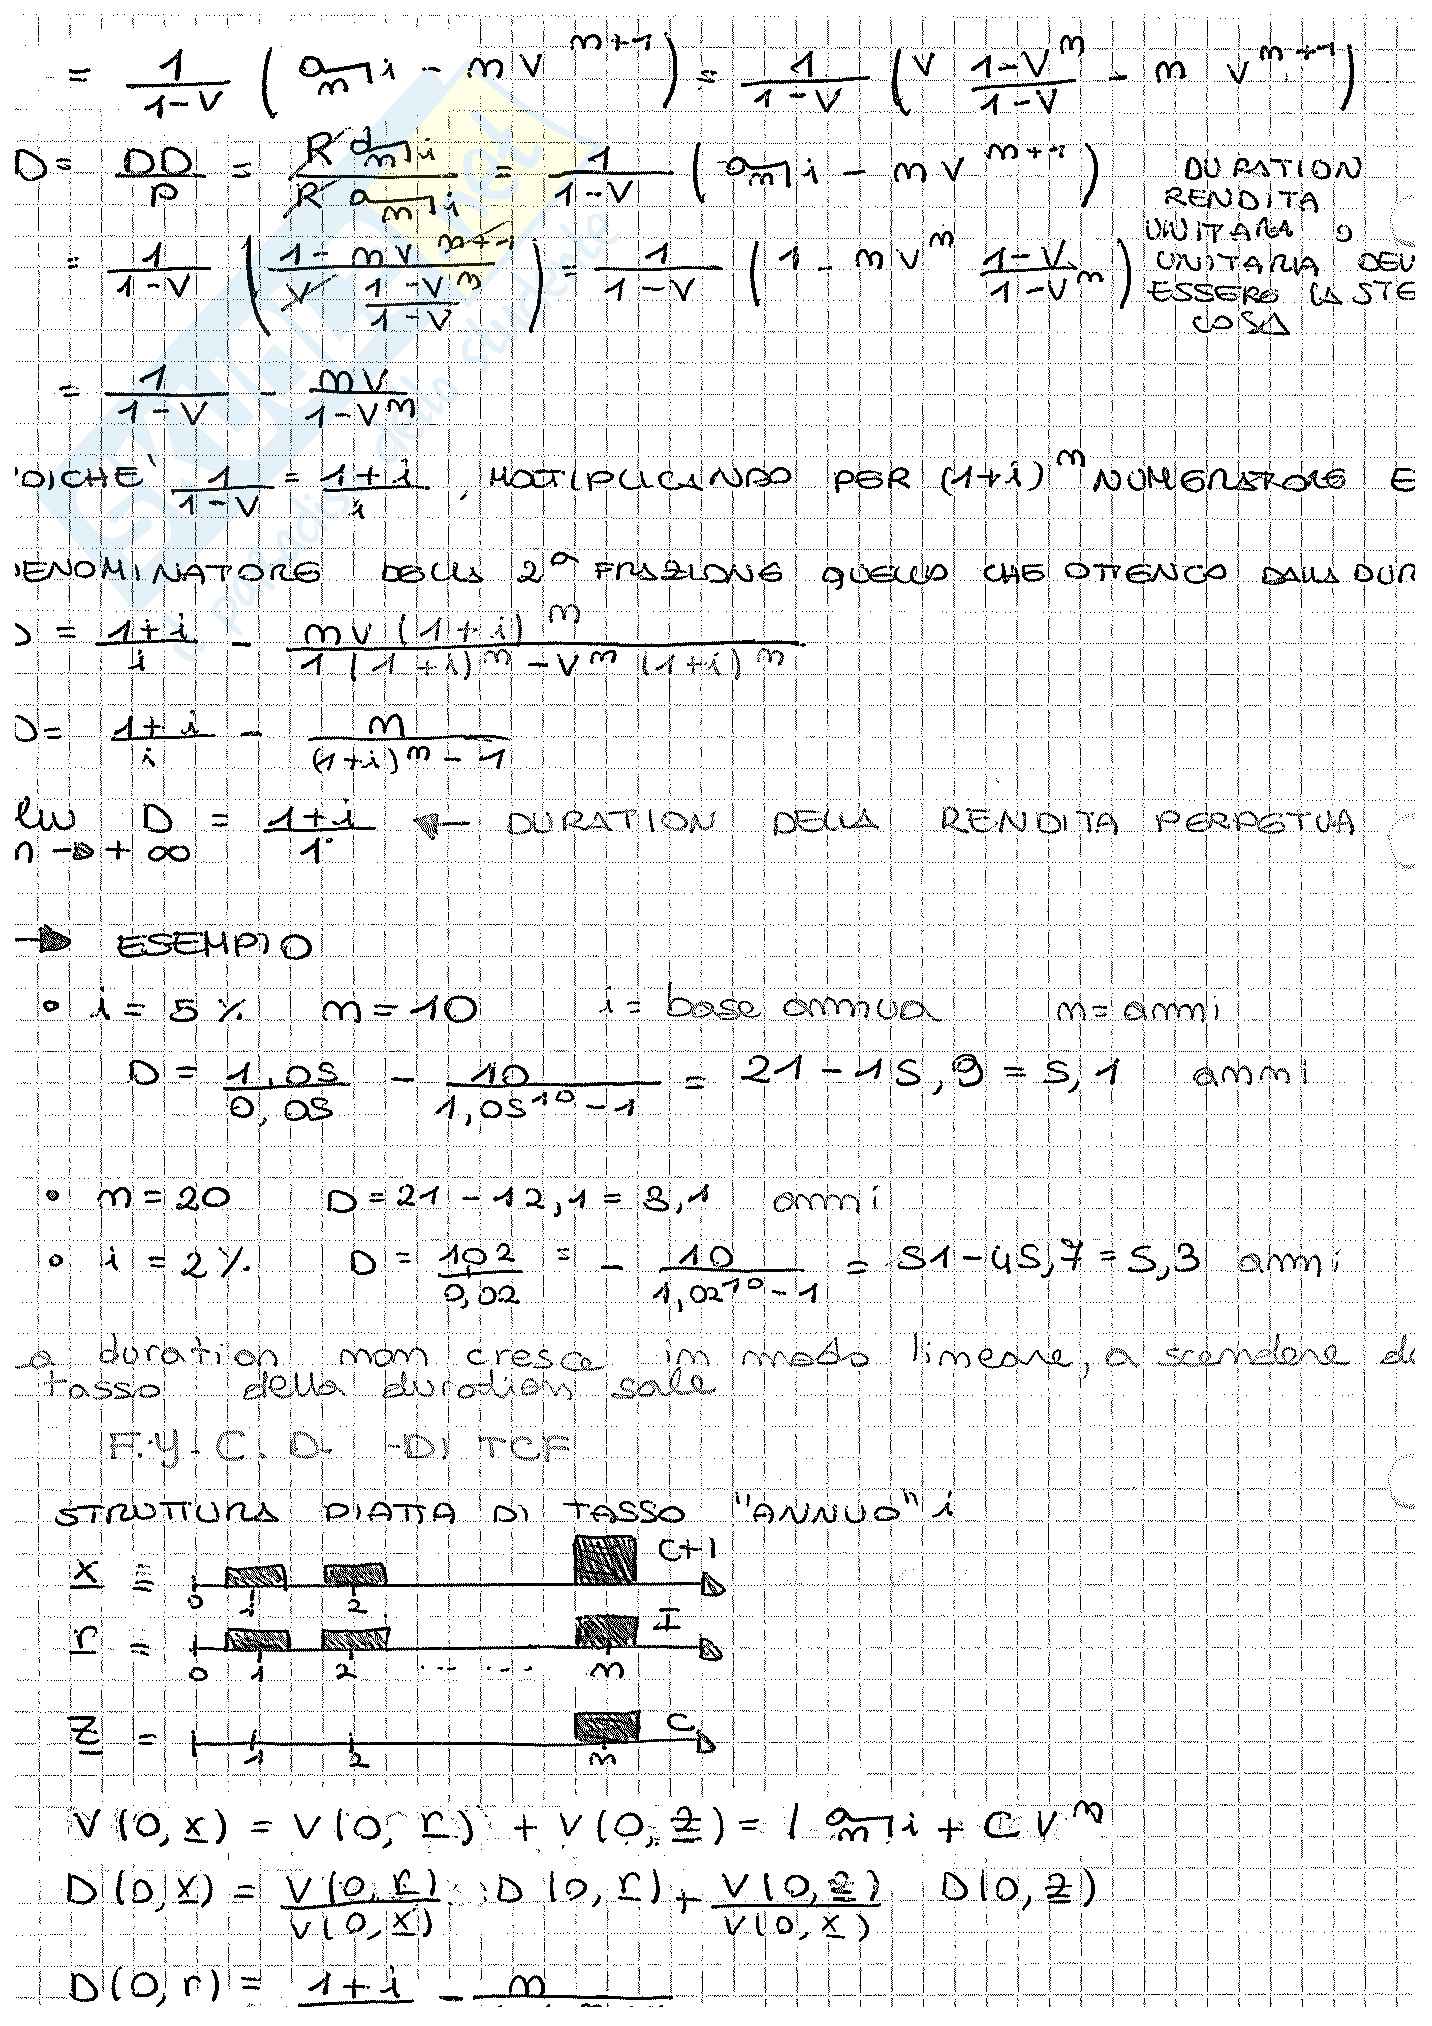 = 1/(1-v) ( a_n⌉i - n v^(n+1) ) = 1/(1-v) ( v (1-v^n)/(1-v) - n v^(n+1) )
D = DD/P = R a_n⌉i / R a_n⌉i = 1/(1-v) ( a_n⌉i - n v^(n+1) ) DURATION
RENDITA
UNITARIA O
= 1/(1-v) ( (1 - n v^(n+1)) / (v (1-v^n)/(1-v)) ) = 1/(1-v) ( 1 - n v^n (1-v)/(1-v^n) ) UNITARIA DEV
ESSERE LA STE
COSA
= 1/(1-v) - nv/(1-v^n)
OICHE' 1/(1-v) = (1+i)/i , MOLTIPLICANDO PER (1+i)^n NUMERATORE E
DENOMINATORE DELLA 2ª FRAZIONE QUELLO CHE OTTENGO DALLA DUR
D = (1+i)/i - nv(1+i)^n / (1(1+i)^n - v^n (1+i)^n)
D = (1+i)/i - n/((1+i)^n - 1)
lim n→+∞ D = (1+i)/i ← DURATION DELLA RENDITA PERPETUA
→ ESEMPIO
• i = 5% n = 10 i = base annua n = anni
D = 1,05/0,05 - 10/(1,05^10 - 1) = 21 - 15,9 = 5,1 anni
• n = 20 D = 21 - 12,1 = 8,1 anni
• i = 2% D = 102/0,02 = - 10/(1,02^10 - 1) = 51 - 45,7 = 5,3 anni
a duration non cresce in modo lineare, a scendere de
tasso della duration sale
F.Y.C.D. - DI TCF
STRUTTURA PIATTA DI TASSO "ANNUO" i
x = 0 1 2 C+I
r = 0 1 2 ... ... n I
z = 1 2 n C
V(0,x) = V(0,r) + V(0,z) = I a_n⌉i + C v^n
D(0,x) = V(0,r)/V(0,x) · D(0,r) + V(0,z)/V(0,x) D(0,z)
D(0,r) = 1+i - n